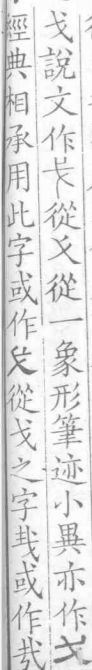 戈說文作𢦏從乂從一象形筆迹小異亦作戈
經典相承用此字或作戈從戈之字㦲或作㢤